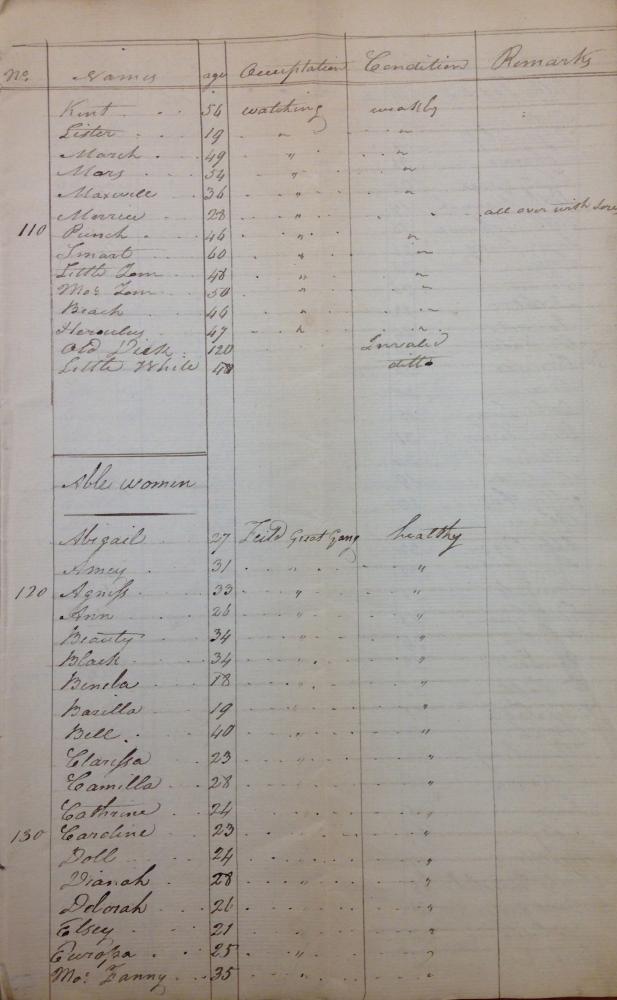 No. Names age Occuptation Condition Remarks
Kent 54 watching weakly
Lister 19 " "
March 49 " "
Mars 54 " "
Maxwell 36 " "
Merrier 28 " " all over with Sores
110 Punch 46 " "
Smart 60 " "
Little Tom 48 " "
Mo: Tom 50 " "
Beach 46 " "
Hercules 47 " "
Old Dick 120 Invalid
Little White ditto
Able women
Abigail 27 Feild Great Gang healthy
Amey 31 " "
120 Agness 33 " "
Ann 26 " "
Beauty 34 " "
Black 34 " "
Beneba 18 " "
Bazilla 19 " "
Bell 40 " "
Clarissa 23 " "
Camilla 28 " "
Cathrine 24 " "
130 Caroline 23 " "
Doll 24 " "
Dianah 28 " "
Deborah 26 " "
Elsey 21 " "
Europa 25 " "
Mo: Fanny 35 " "